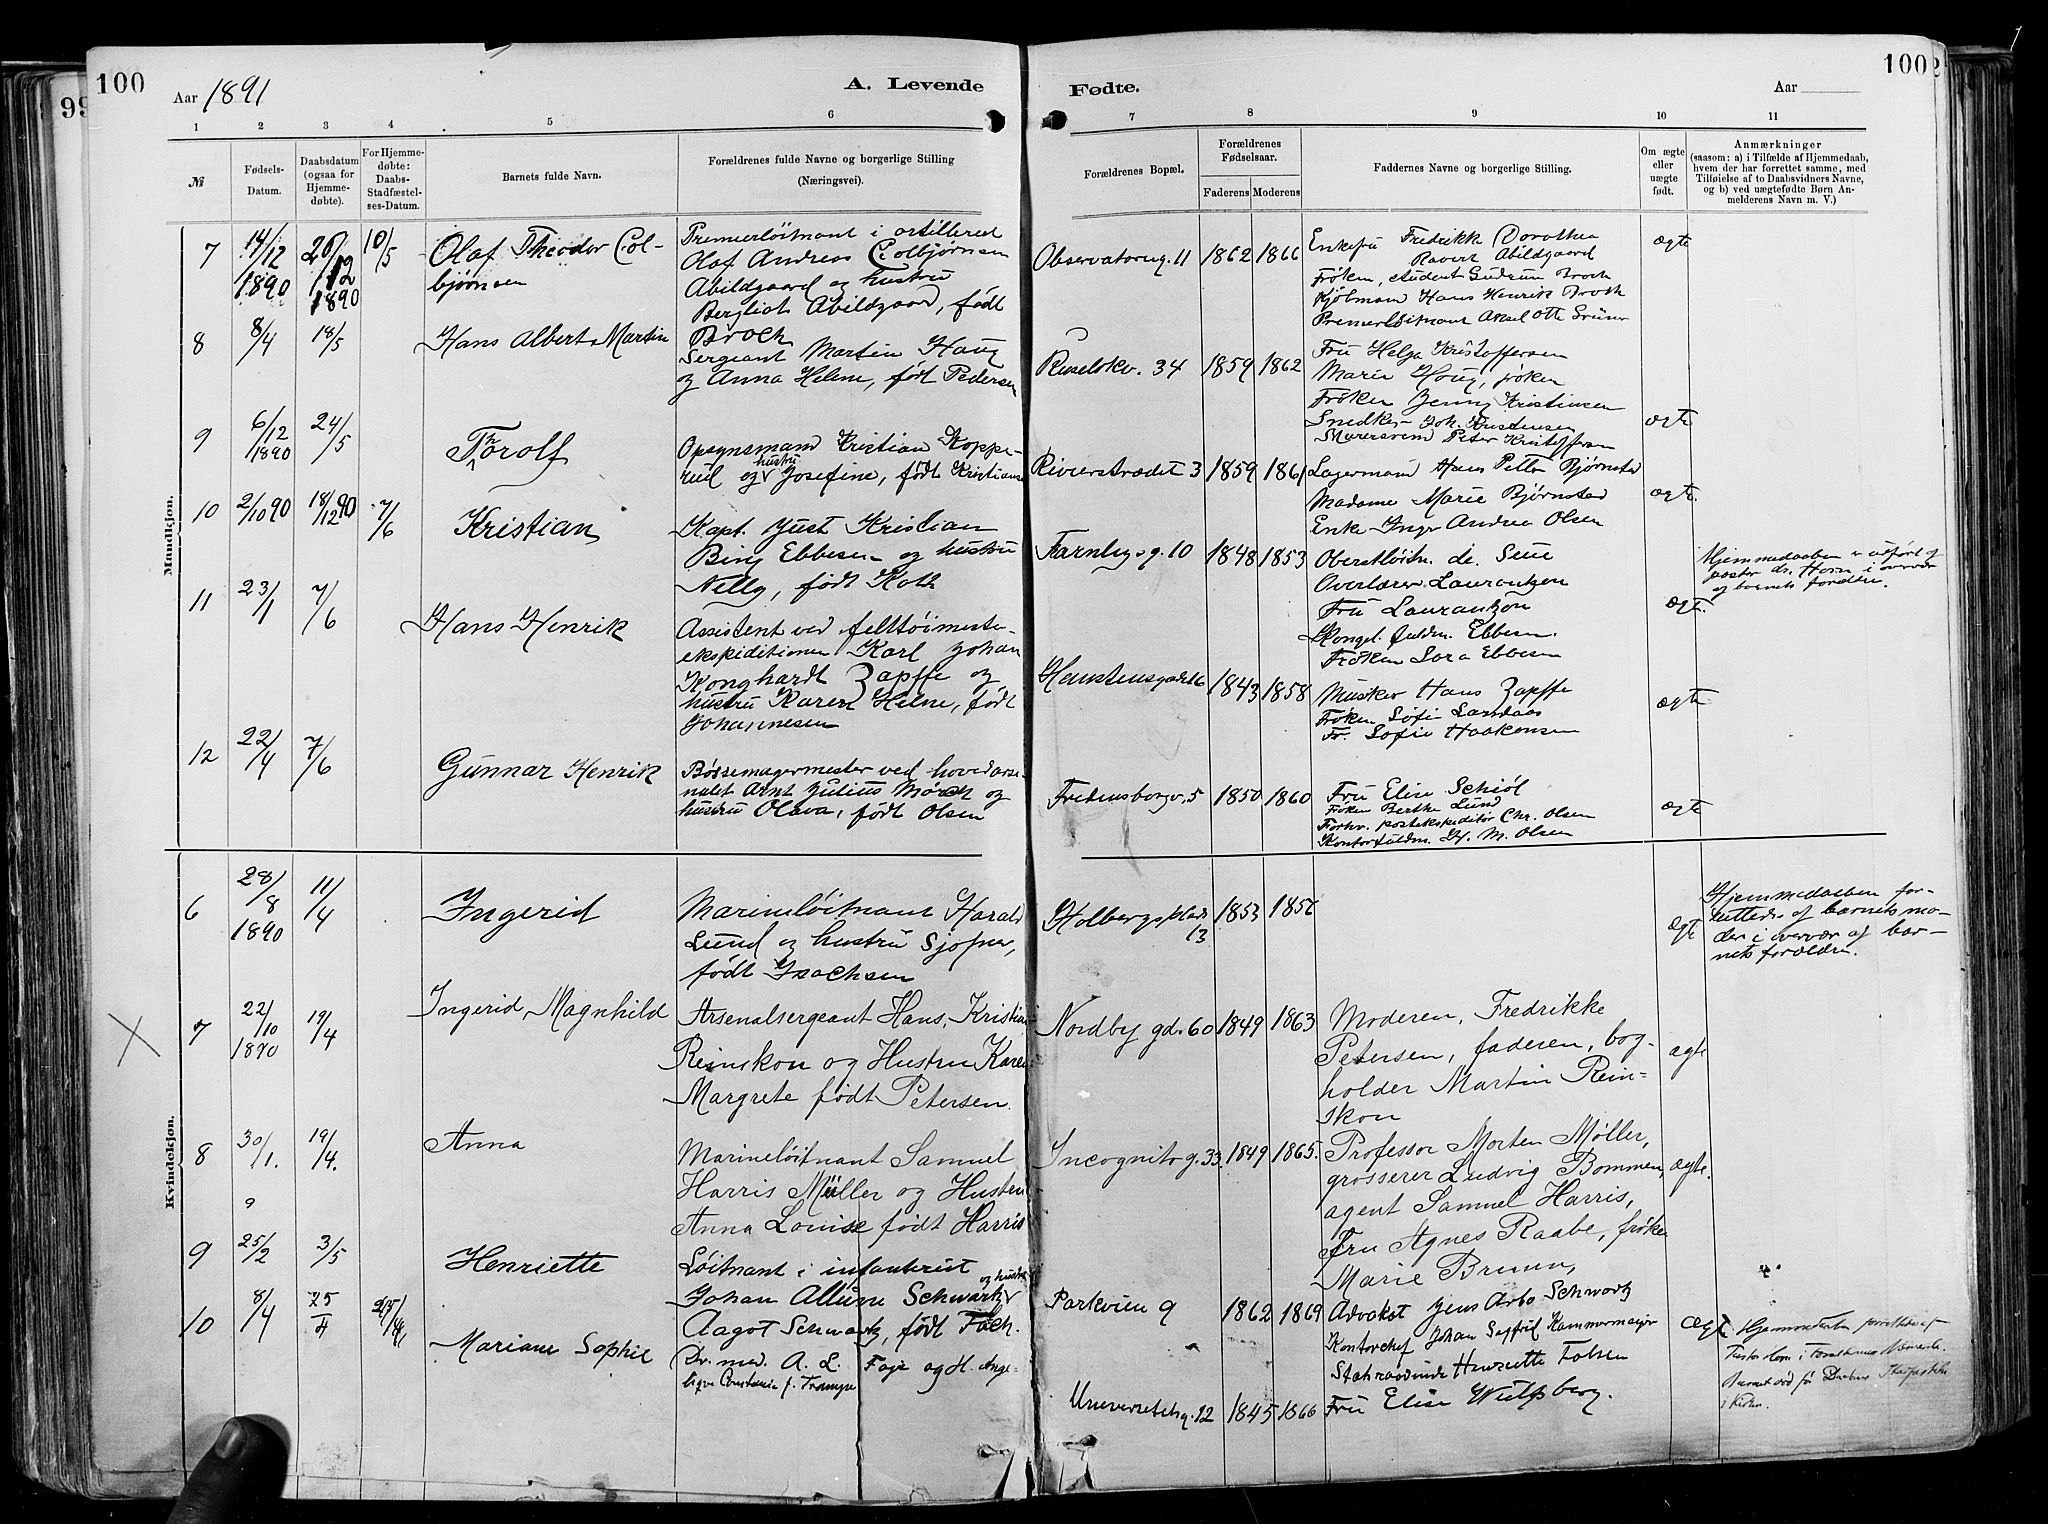 100
99
Aar 1891
A. Levende
Fødte.
Aar
100
1 2 3 4 5 6 7 8 9 10 11
№
Fødsels-Datum.
Daabsdatum (ogsaa for Hjemmedøbte).
For Hjemmedøbte: Daabs-Stadfæstelses-Datum.
Barnets fulde Navn.
Forældrenes fulde Navne og borgerlige Stilling
(Næringsvei).
Forældrenes Bopæl.
Forældrenes Fødselsaar.
Faderens Moderens
Faddernes Navne og borgerlige Stilling.
Om ægte eller uægte født.
Anmærkninger
(saasom: a) i Tilfælde af Hjemmedaab,
hvem der har forrettet samme, med
Tilføielse af to Daabsvidners Navne,
og b) ved uægtefødte Børn Anmelderens Navn m. V.)
Mandkjøn.
7 14/12 1890 20/12 1890 10/5
Olaf Theodor Colbjørnsen
Premierløitnant i artilleriet
Olaf Andreas Colbjørnsen
Abildgaard og hustru
Bergliot Abildgaard, født
Broch
Observatorieg. 11 1862 1866
Enkefru Fredrikk Dorothea
Ravert Abildgaard
Frøken, student Gudrun Broch
Kjøbmand Hans Henrik Broch
Premierløitnant Aksel Otto Grüner
ægte
8 8/4 18/5
Hans Albert Martin
Sergeant Martin Haug
og Anna Helene, født Pedersen
Ruseløkv. 34 1859 1862
Fru Helga Kristoffersen
Marie Houg, frøken
Frøken Jenny Kristiansen
Snedker Joh. Kristensen
Murersvend Peter Kristoffersen
ægte
9 6/12 1890 24/5
Thorolf
Opsynsmand Kristian Kopperud
og hustru Josefine, født Kristians
Rivierstrædet 3 1859 1861
Lagermand Hans Petter Bjørnstad
Madame Marie Bjørnstad
Enke Inger Andrea Olsen
ægte.
10 2/10 90 18/12 90 7/6
Kristian
Kapt. Just Kristian
Bing Ebbesen og hustru
Nelly, født Roth
Farnlyg. 10 1848 1853
Oberstløitn. de. Seue
Overlærer Laurantzon
Fru Laurantzon
Kongel. fuldm. Ebbesen.
Frøken Lora Ebbesen
ægte.
Hjemmedaaben er udført af
pastor dr. Horn i overvær
af barnets forældre.
11 23/1 7/6
Hans Henrik
Assistent ved felttøimesterekspeditionen
Karl Johan
Konghardt Zapffe og
hustru Karen Helene, født
Johannesen
Hanstensgade 16 1843 1858
Musiker Hans Zapffe
Frøken Sofie Landaas
Fr. Sofie Haakensen
ægte
12 22/4 7/6
Gunnar Henrik
Bøssemagermester ved hovedarsenalet
Arnt Julius Mørch og
hustru Olava, født Olsen
Fredensborgv. 5 1850 1860
Fru Elise Schiøl
Frøken Berthe Lund
Forhv. postekspeditør Chr. Olsen
Kontorfuldm. H. M. Olsen
ægte
Kvindekjøn.
6 28/8 1890 11/4
Ingerid
Marineløitnant Harald
Lund og hustru Sjofner,
født Isachsen
Holbergsplads 13 1853 1856
ægte
Hjemmedaaben forrettedes
af barnets moder
i overvær af barnets
forældre.
X
7 22/10 1890 19/4
Ingerid Magnhild
Arsenalsergeant Hans Kristian
Reinskou og Hustru Karen
Margrete født Petersen.
Nordby gd. 60 1849 1863
Moderen, Fredrikke
Petersen, faderen, bogholder
Martin Reinskou
ægte
8 30/1. 19/4.
Anna
Marineløitnant Samuel
Harris Müller og Hustru
Anna Louise født Harris
Incognitog. 33. 1849 1865.
Professor Morten Møller,
grosserer Ludvig Bommen,
agent Samuel Harris,
Fru Agnes Raabe, frøken
Marie Bruun,
ægte.
9
9 25/2 3/5
Henriette
Løitnant i infanteriet
Johan Allum Schwartz og hustru
Aagot Schwartz, født Foch.
Parkveien 9 1862 1869
Advokat Jens Arbo Schwartz
Kontorchef Johan Seffrid Kammermejer
Statsraadinde Henriette Folsen
ægte.
10 8/4 25/4 25/4
Mariane Sophie
Dr. med. A. L. Faye og H. Angelique
Constance f. Trampe
Universitetsg. 12 1845 1866
Fru Elise Wulfsberg.
Hjemmedaaben forrettedes af
Pastor Horn i Forældrenes Nærværelse.
Barnet
i Kirken.